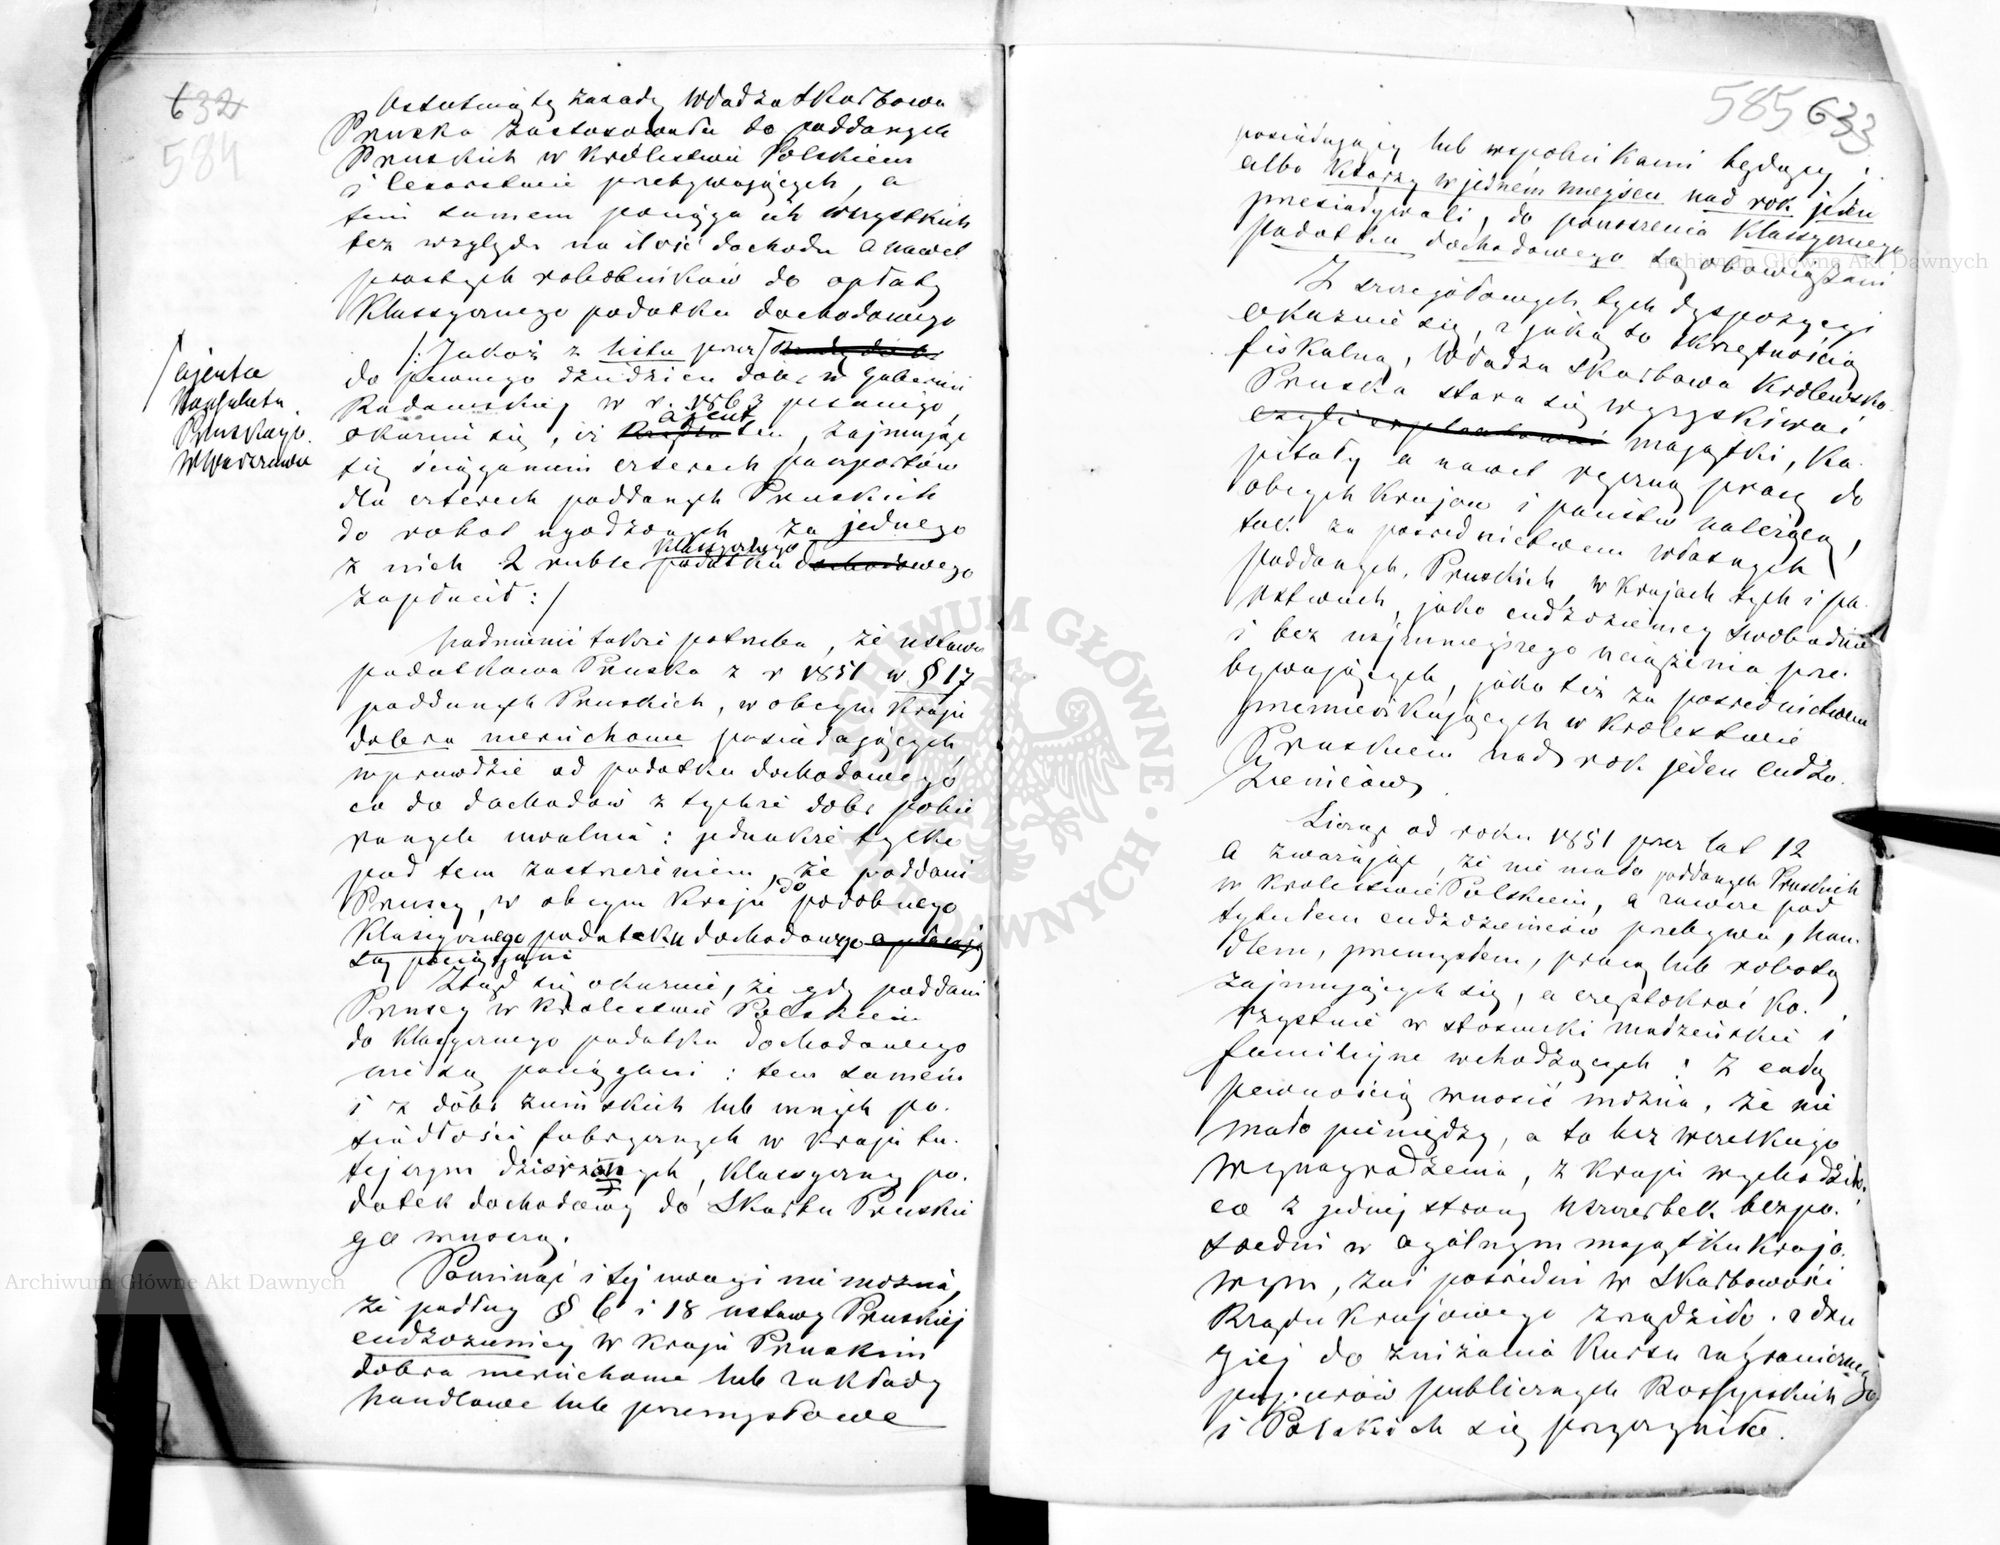 632
584
Ostatnią tę zasadę Władza Skarbowa
Pruska zastosowała do poddanych
Pruskich w Królestwie Polskiem
i Cesarstwie przebywających, a
tem samem pociąga ich wszystkich
bez względu na ilość dochodu a nawet
prostych robotników do opłaty
Klassycznego podatku dochodowego
/: Jakoż z listu przez
ajenta
Konsulatu
Pruskiego
w Warszawie
do pewnego dziedzica dóbr w Gubernii
Radomskiej w r. 1863 pisanego,
okazuie się, iż agent ten, zajmując
się ściąganiem czterech paszportów
dla czterech poddanych Pruskich
do robot ugodzonych za jednego
z nich 2 ruble Klassycznego podatku dochodowego
zapłacił :/
Nadmienić także potrzeba, że ustawa
podatkowa Pruska z r 1851 w § 17
poddanych Pruskich, w obcym kraju
dobra nieruchome posiadających
wprawdzie od podatku dochodowego
co do dochodów z tychże dóbr pobie
ranych uwalnia: jednakże tylko
pod tem zastrzeżeniem, że poddani
Pruscy, w obcym kraju do podobnego
Klasycznego podatku dochodowego
są pociągani
Ztąd się okazuie, że gdy poddani
Pruscy w Królestwie Polskiem
do Klasycznego podatku dochodowego
nie są pociągani: tem samem
i z dóbr ziemskich lub innych po-
siadłości fabrycznych w kraju tu-
tejszym, Klassyczny po-
datek dochodowy do Skarbu Pruskie
go wnoszą.
Pominąć i tej uwagi nie można,
że podług § 6 i 18 ustawy Pruskiej
cudzoziemcy w kraju Pruskim
dobra nieruchome lub zakłady
handlowe lub przemysłowe
585 633
posiadający lub wspólnikami będący;
albo którzy w jedném miejscu nad rok jeden
przesiadywali, do ponoszenia Klassycznego
podatku dochodowego są obowiązani
Z szczegółowych tych dyspozycyi
okazuie się, z jaką to skrzętnością
fiskalną, Władza Skarbowa Królewsko
Pruska stara się wyzyskiwać
majątki, ka-
pitały a nawet ręczną pracę do
obcych krajów i państw należącą,
tak za posrednictwem własnych
poddanych Pruskich, w krajach tych i pa-
ństwach, jako cudzoziemcy swobodnie
i bez najmniejszego uciążenia prze-
bywających, jako też za posrednictwem
przemieszkujących w Królestwie
Pruskiem nad rok jeden cudzo-
ziemców.
Licząc od roku 1851 przez lat 12
a zważając, że nie mało poddanych Pruskich
w Królestwie Polskiem, a zawsze pod
tytułem cudzoziemców przebywa, han-
dlem, przemysłem, pracą lub robotą
zajmujących się, a częstokroć ko-
rzystnie w stosunki małżeńskie i
familijne wchodzących: z całą
pewnością wnosić można, że nie
mało pieniędzy, a to bez wszelkiego
wynagrodzenia, z kraju wychodziło,
co z jednéj strony uszczerbek bezpo-
średni w ogólnym majątku krajo-
wym, zaś posredni w Skarbowości
Rządu Krajowego zrządziło. z dru
giej do zniżania kursu zagranicznego
papierów publicznych Rossyjskich
i Polskich się przyczyniło.